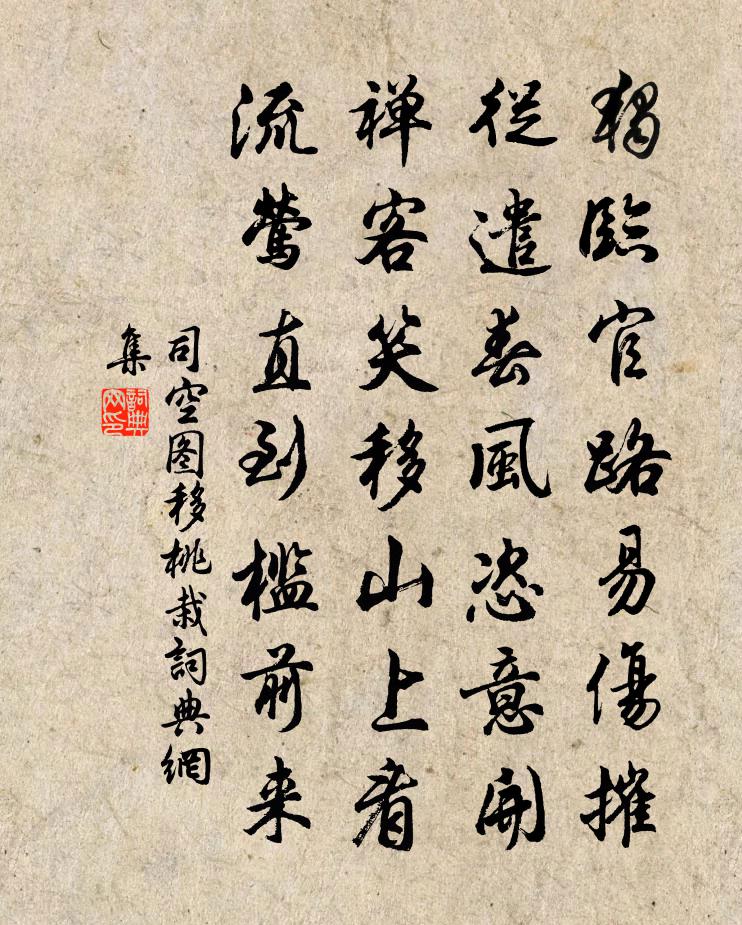 獨臨官路易傷摧
從遣春風恣意開
禪客笑移山上看
流鶯直到檻前来
司空图移桃栽詞典網
集
詞典
网印